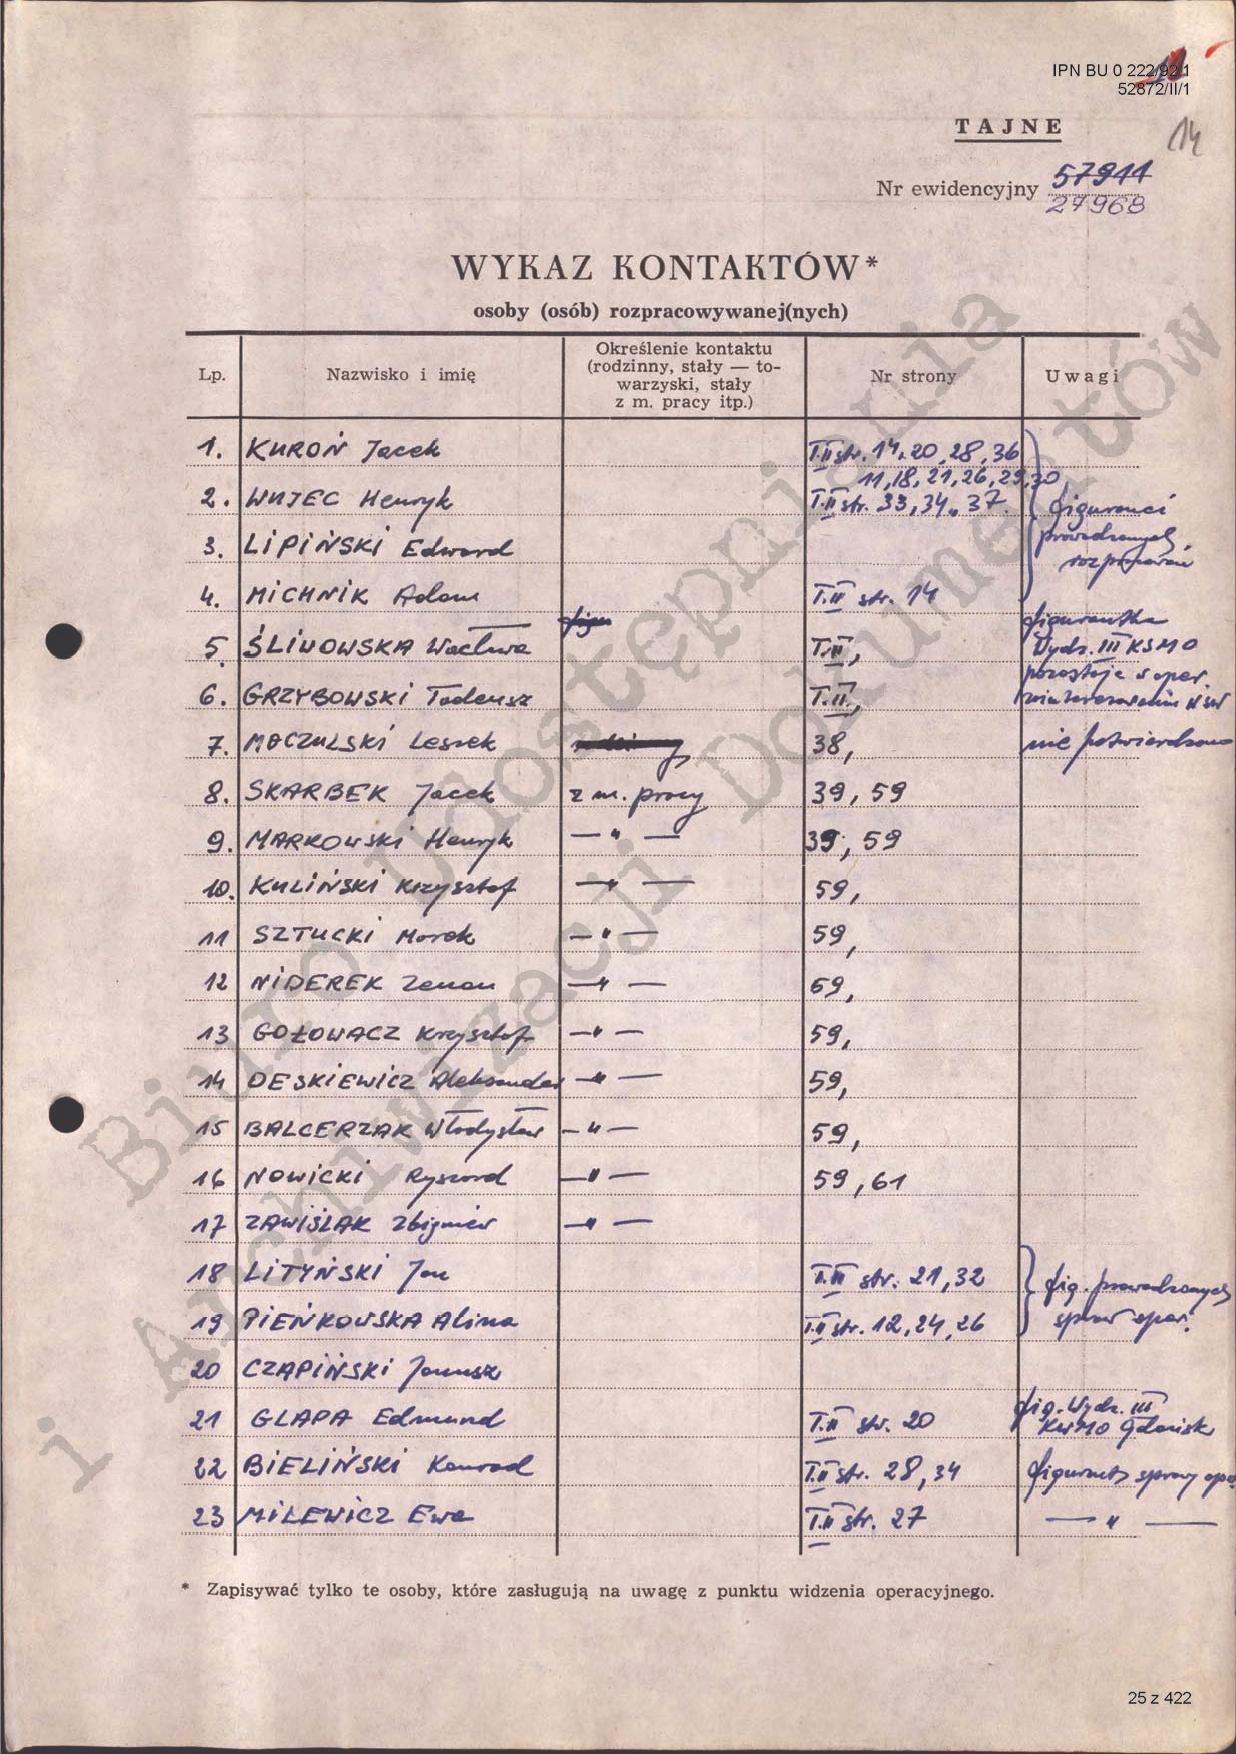 IPN BU 0 222/92/1
52872/II/1
TAJNE
14
Nr ewidencyjny 57911
27968
WYKAZ KONTAKTÓW*
osoby (osób) rozpracowywanej(nych)
Lp. Nazwisko i imię Określenie kontaktu (rodzinny, stały — to-warzyski, stały z m. pracy itp.) Nr strony Uwagi
1. KUROŃ Jacek T.II str. 14, 20, 28, 36
11, 18, 21, 26, 29, 30
2. WUJEC Henryk T.II str. 33, 34, 37. figuranci
3. LIPIŃSKI Edward prowadzonych
rozpracowań
4. MICHNIK Adam T.II str. 14
figurantka
5. ŚLIWOWSKA Wacława T.II, Wydz. III KSMO
pozostaje w oper.
6. GRZYBOWSKI Tadeusz T.II, zainteresowaniu
7. MOCZULSKI Leszek 38, nie potwierdzono
8. SKARBEK Jacek z m. pracy 39, 59
9. MARKOWSKI Henryk — " — 39, 59
10. KULIŃSKI Krzysztof — " — 59,
11 SZTUCKI Marek — " — 59,
12 NIDEREK Zenon — " — 59,
13 GOŁOWACZ Krzysztof — " — 59,
14 DESKIEWICZ Aleksander — " — 59,
15 BALCERZAK Władysław — " — 59,
16 NOWICKI Ryszard — " — 59, 61
17 ZAWIŚLAK Zbigniew — " —
18 LITYŃSKI Jan T.II str. 21, 32 fig. prowadzonych
19 PIEŃKOWSKA Alina T.II str. 12, 24, 26 spraw oper.
20 CZAPIŃSKI Janusz
21 GLAPA Edmund T.II str. 20 fig. Wydz. III
KWMO Gdańsk
22 BIELIŃSKI Konrad T.II str. 28, 34 figurant sprawy oper.
23 MILEWICZ Ewa T.II str. 27 — " —
* Zapisywać tylko te osoby, które zasługują na uwagę z punktu widzenia operacyjnego.
Biuro Udostępniania
i Archiwizacji Dokumentów
25 z 422